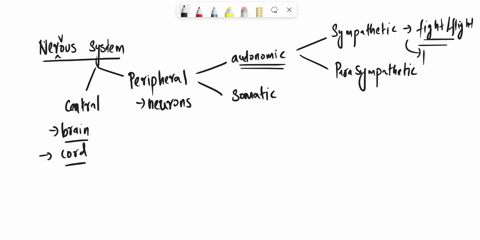 Nervous System
Central
→ brain
→ cord
Peripheral
→ neurons
autonomic
Somatic
Sympathetic → fight & flight
Parasympathetic